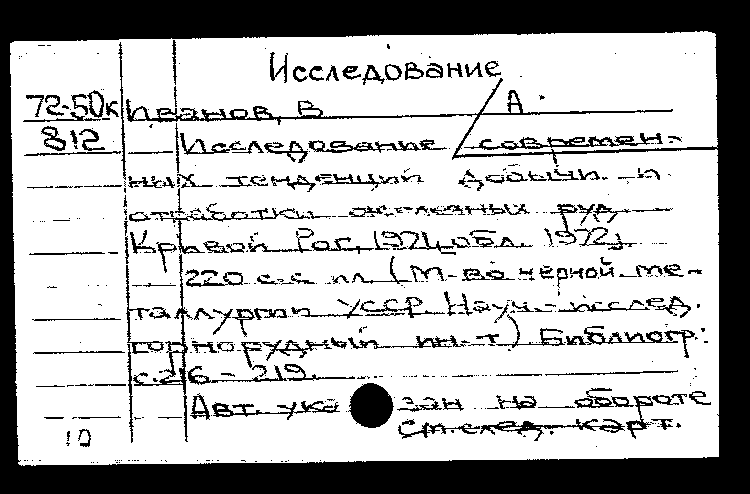 Исследование
72-50к Иванов, В А.
812 Исследование современ-
ных тенденций добычи и
отработки железных руд,
Кривой Рог, 1971, обл. 1972,
220 с. с ил. (М-во черной ме-
таллургии УССР. Науч.-исслед.
горнорудный ин-т) Библиогр:
с. 216 - 219.
Авт. указан на обороте
См. след. карт.
10